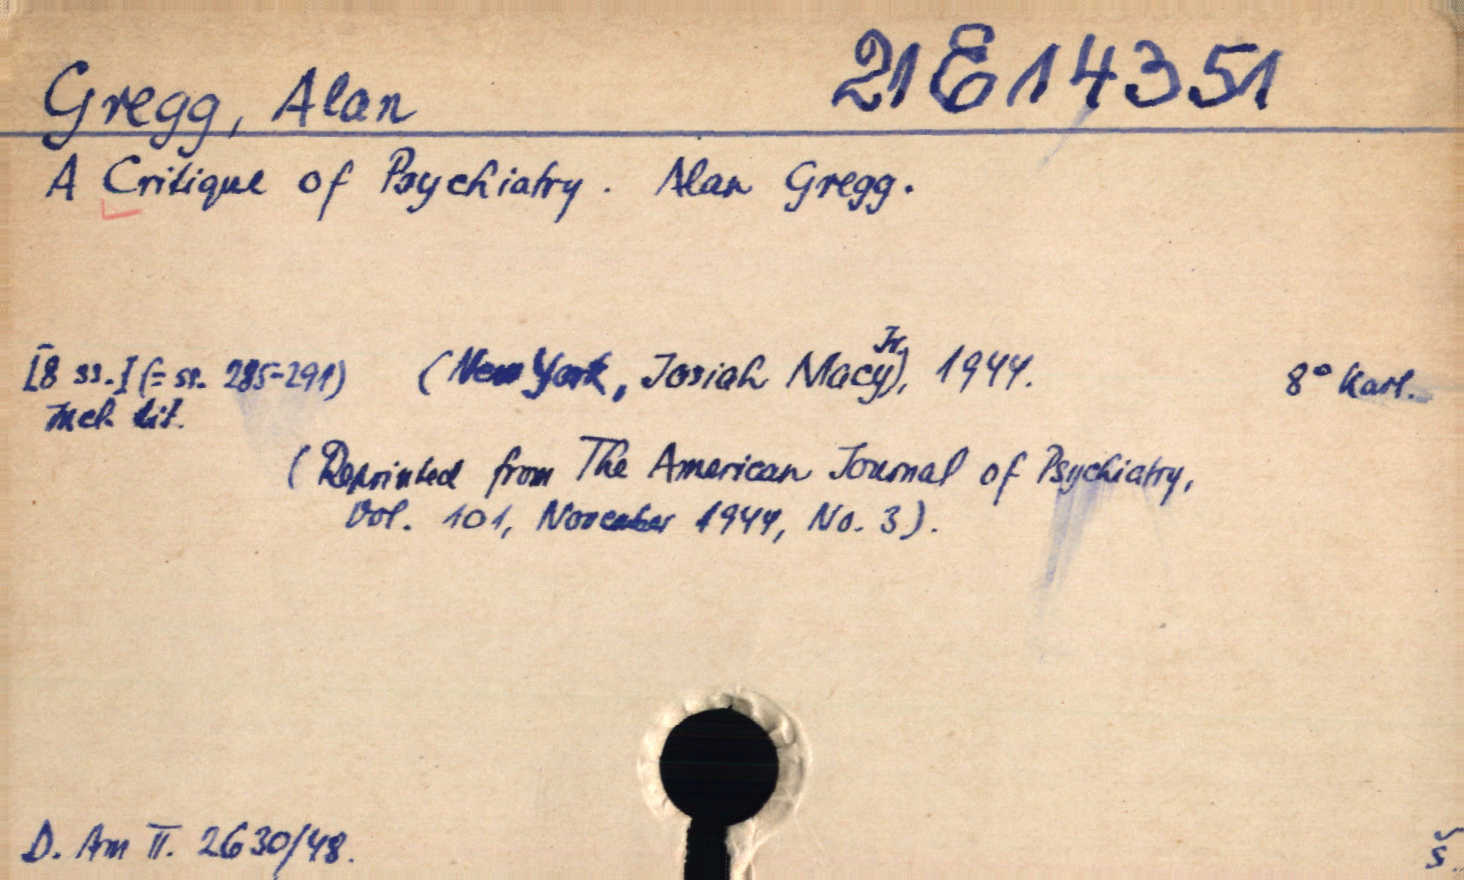 Gregg, Alan 21 E 14351
A Critique of Psychiatry. Alan Gregg.
[8 ss.] (= ss. 285-291) (New York, Josiah Macy Jr.), 1944. 8° Kart.
incl. tit.
(Reprinted from The American Journal of Psychiatry,
Vol. 101, November 1944, No. 3).
D. Am II. 2630/48. š.